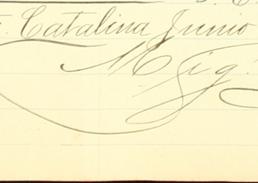 Catalina Junio
Mig